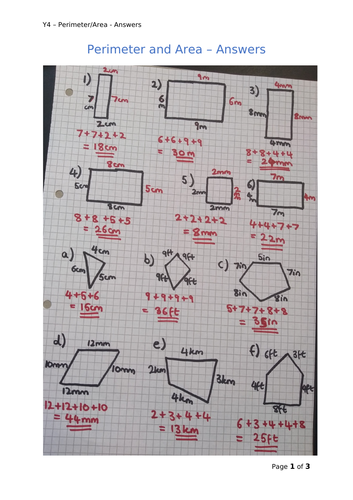 Y4 – Perimeter/Area - Answers
Perimeter and Area – Answers
1) 2cm
7cm 7cm
2cm
7+7+2+2
= 18cm
2) 9m
6m 6m
9m
6+6+9+9
= 30m
3) 4mm
8mm 8mm
4mm
8+8+4+4
= 24mm
4) 8cm
5cm 5cm
8cm
8+8+5+5
= 26cm
5) 2mm
2mm 2mm
2mm
2+2+2+2
= 8mm
6) 7m
4m 4m
7m
4+4+7+7
= 22m
a) 4cm
6cm 5cm
4+5+6
= 15cm
b) 9ft 9ft
9ft 9ft
9+9+9+9
= 36ft
c) 7in 5in
7in
8in 8in
5+7+7+8+8
= 35in
d) 12mm
10mm 10mm
12mm
12+12+10+10
= 44mm
e) 4km
2km 3km
4km
2+3+4+4
= 13km
f) 6ft 3ft
4ft 4ft
8ft
6+3+4+4+8
= 25ft
Page 1 of 3